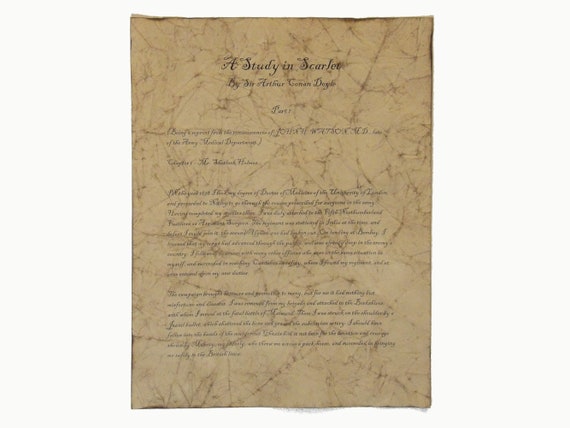 A Study in Scarlet
By Sir Arthur Conan Doyle
Part 1
(Being a reprint from the reminiscences of JOHN H. WATSON, M.D., late
of the Army Medical Department.)
Chapter 1 - Mr. Sherlock Holmes
the year 1878 I took my degree of Doctor of Medicine of the University of London,
and proceeded to Netley to go through the course prescribed for surgeons in the army.
Having completed my studies there, I was duly attached to the Fifth Northumberland
Fusiliers as Assistant Surgeon. The regiment was stationed in India at the time, and
before I could join it, the second Afghan war had broken out. On landing at Bombay, I
learned that my corps had advanced through the passes, and was already deep in the enemy's
country. I followed, however, with many other officers who were in the same situation as
myself, and succeeded in reaching Candahar in safety, where I found my regiment, and at
once entered upon my new duties.
The campaign brought honours and promotion to many, but for me it had nothing but
misfortune and disaster. I was removed from my brigade and attached to the Berkshires,
with whom I served at the fatal battle of Maiwand. There I was struck on the shoulder by a
Jezail bullet, which shattered the bone and grazed the subclavian artery. I should have
fallen into the hands of the murderous Ghazis had it not been for the devotion and courage
shown by Murray, my orderly, who threw me across a pack-horse, and succeeded in bringing
me safely to the British lines.